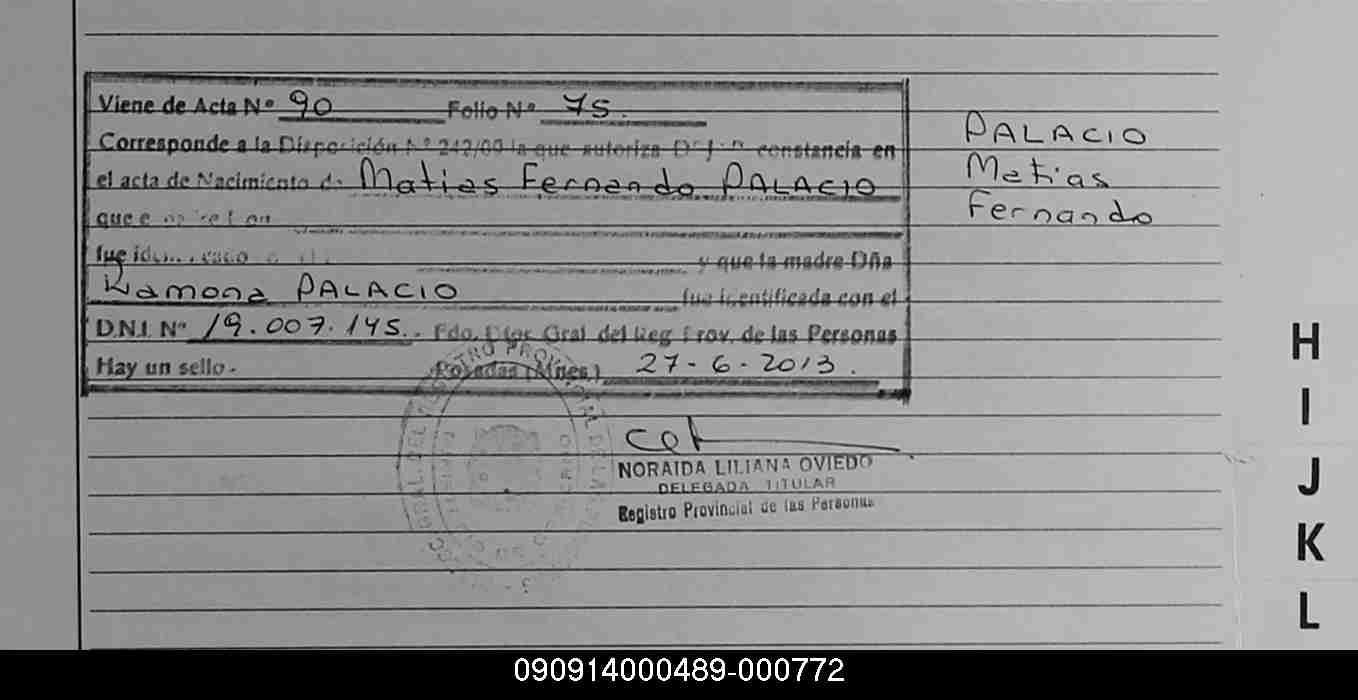 Viene de Acta Nº 90 Folio Nº 75.
Corresponde a la Disposición Nº 242/09 la que autoriza constancia en
el acta de Nacimiento de Matias Fernando PALACIO
que
fue y que la madre Dña
Ramona PALACIO fue identificada con el
D.N.I. Nº 19.007.145. Fdo. Dtor Gral del Reg Prov. de las Personas
Hay un sello. Posadas (Mnes.) 27-6-2013.
PALACIO
Matias
Fernando
NORAIDA LILIANA OVIEDO
DELEGADA TITULAR
Registro Provincial de las Personas
H
I
J
K
L
090914000489-000772